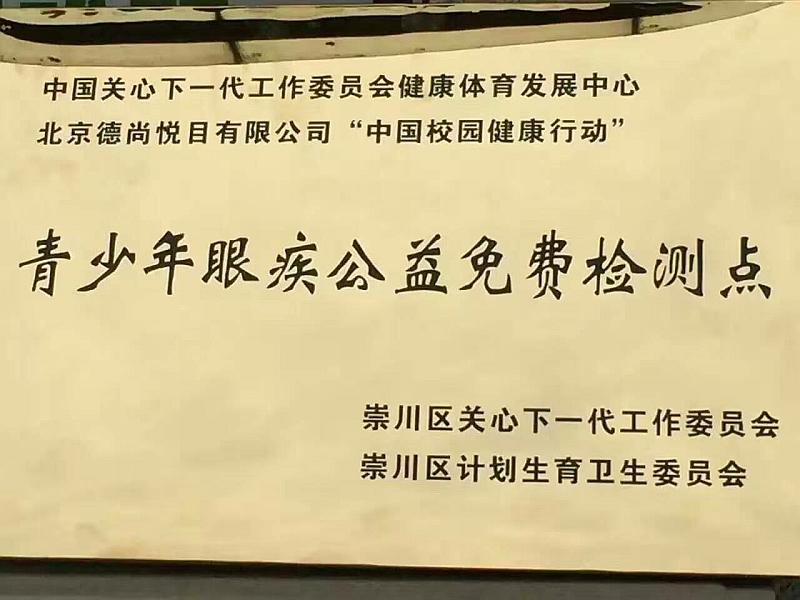 中国关心下一代工作委员会健康体育发展中心
北京德尚悦目有限公司“中国校园健康行动”
青少年眼疾公益免费检测点
崇川区关心下一代工作委员会
崇川区计划生育卫生委员会